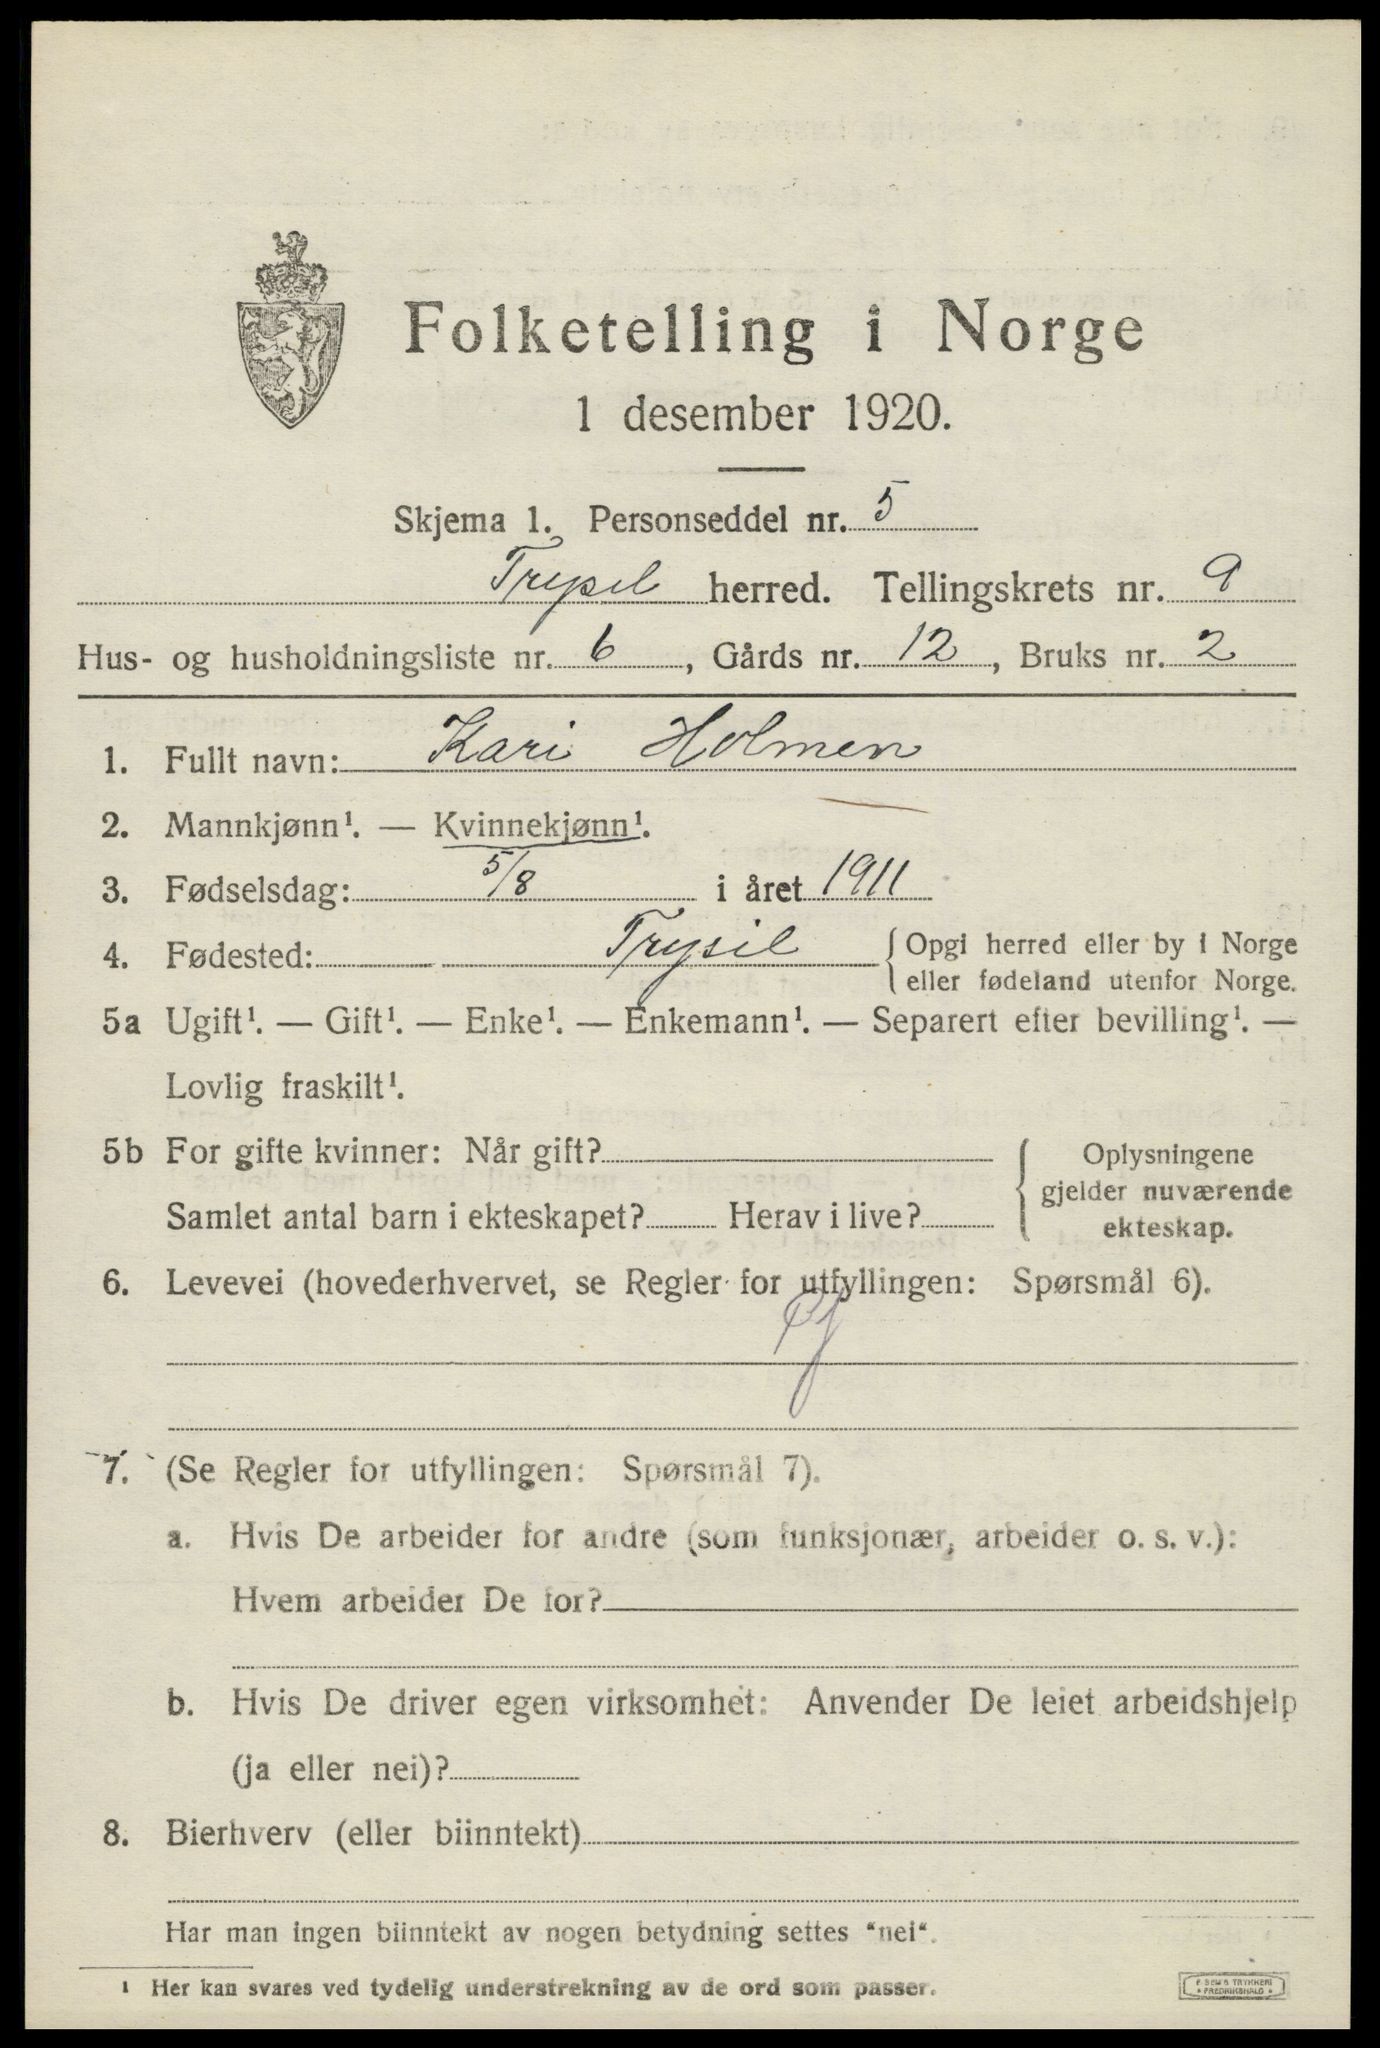 Folketelling i Norge
1 desember 1920.
Skjema 1. Personseddel nr. 5
Trysil herred. Tellingskrets nr. 9
Hus- og husholdningsliste nr. 6, Gårds nr. 12, Bruks nr. 2
1. Fullt navn: Kari Holmen
2. Mannkjønn¹. — Kvinnekjønn¹.
3. Fødselsdag: 5/8 i året 1911
4. Fødested: Trysil { Opgi herred eller by i Norge
eller fødeland utenfor Norge.
5a Ugift¹. — Gift¹. — Enke¹. — Enkemann¹. — Separert efter bevilling¹. —
Lovlig fraskilt¹.
5b For gifte kvinner: Når gift?
Samlet antal barn i ekteskapet? Herav i live?
{ Oplysningene
gjelder nuværende
ekteskap.
6. Levevei (hovederhvervet, se Regler for utfyllingen: Spørsmål 6).
7. (Se Regler for utfyllingen: Spørsmål 7).
a. Hvis De arbeider for andre (som funksjonær, arbeider o. s. v.):
Hvem arbeider De for?
b. Hvis De driver egen virksomhet: Anvender De leiet arbeidshjelp
(ja eller nei)?
8. Bierhverv (eller biinntekt)
Har man ingen biinntekt av nogen betydning settes "nei".
¹ Her kan svares ved tydelig understrekning av de ord som passer.